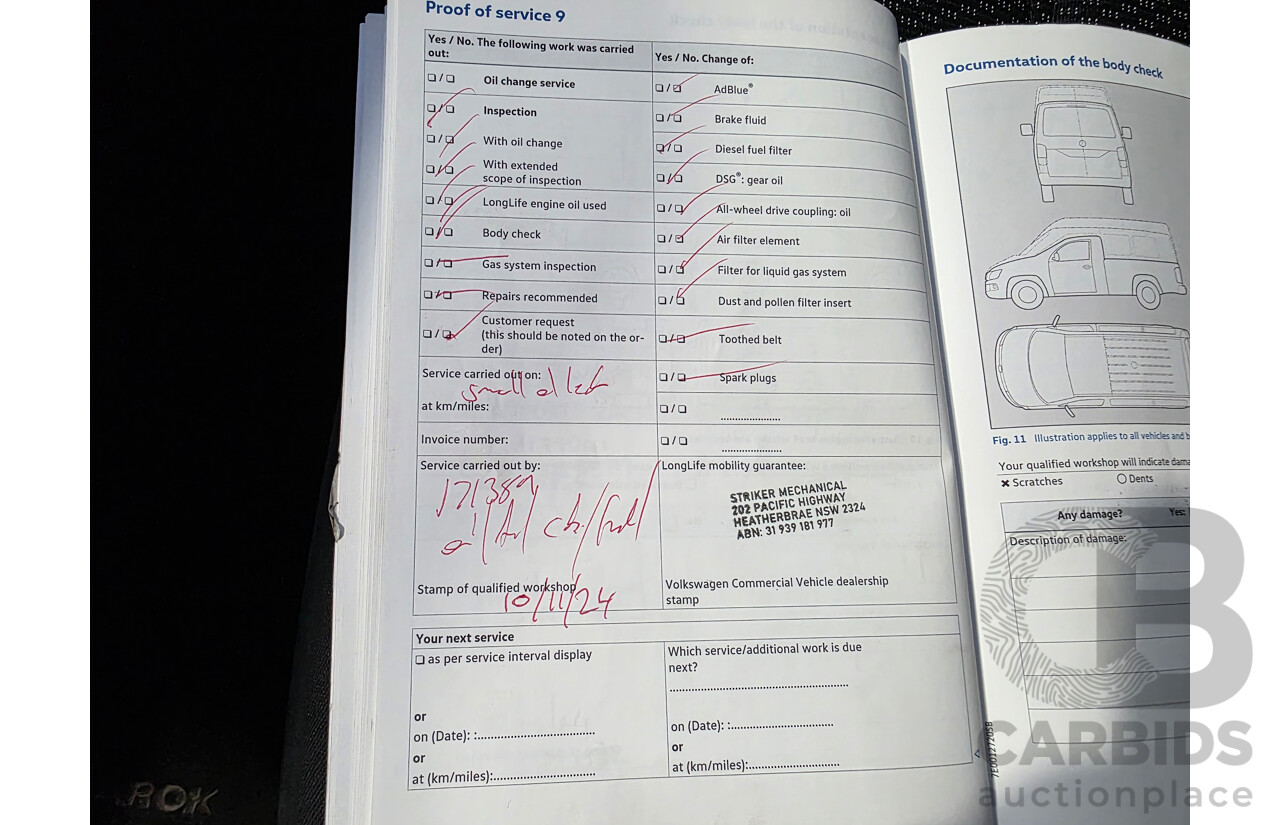 Proof of service 9
Yes / No. The following work was carried out:
❑ / ❑ Oil change service
❑ / ❑ Inspection
❑ / ❑ With oil change
❑ / ❑ With extended scope of inspection
❑ / ❑ LongLife engine oil used
❑ / ❑ Body check
❑ / ❑ Gas system inspection
❑ / ❑ Repairs recommended
❑ / ❑ Customer request
(this should be noted on the or-
der)
Yes / No. Change of:
❑ / ❑ AdBlue®
❑ / ❑ Brake fluid
❑ / ❑ Diesel fuel filter
❑ / ❑ DSG®: gear oil
❑ / ❑ All-wheel drive coupling: oil
❑ / ❑ Air filter element
❑ / ❑ Filter for liquid gas system
❑ / ❑ Dust and pollen filter insert
❑ / ❑ Toothed belt
❑ / ❑ Spark plugs
❑ / ❑ .....................
❑ / ❑ .....................
Service carried out on:
small oil
at km/miles:
Invoice number:
Service carried out by:
oil
Stamp of qualified workshop
10/11/24
LongLife mobility guarantee:
STRIKER MECHANICAL
202 PACIFIC HIGHWAY
HEATHERBRAE NSW 2324
ABN: 31 939 181 977
Volkswagen Commercial Vehicle dealership
stamp
Your next service
❑ as per service interval display
or
on (Date): :..................................
or
at (km/miles):..............................
Which service/additional work is due
next?
....................................................
on (Date): :..............................
or
at (km/miles):...........................
Documentation of the body check
Fig. 11 Illustration applies to all vehicles and b
Your qualified workshop will indicate dama
✖ Scratches
○ Dents
Any damage? Yes:
Description of damage:
7E0012720SB
ROK
CB
CARBIDS
auctionplace